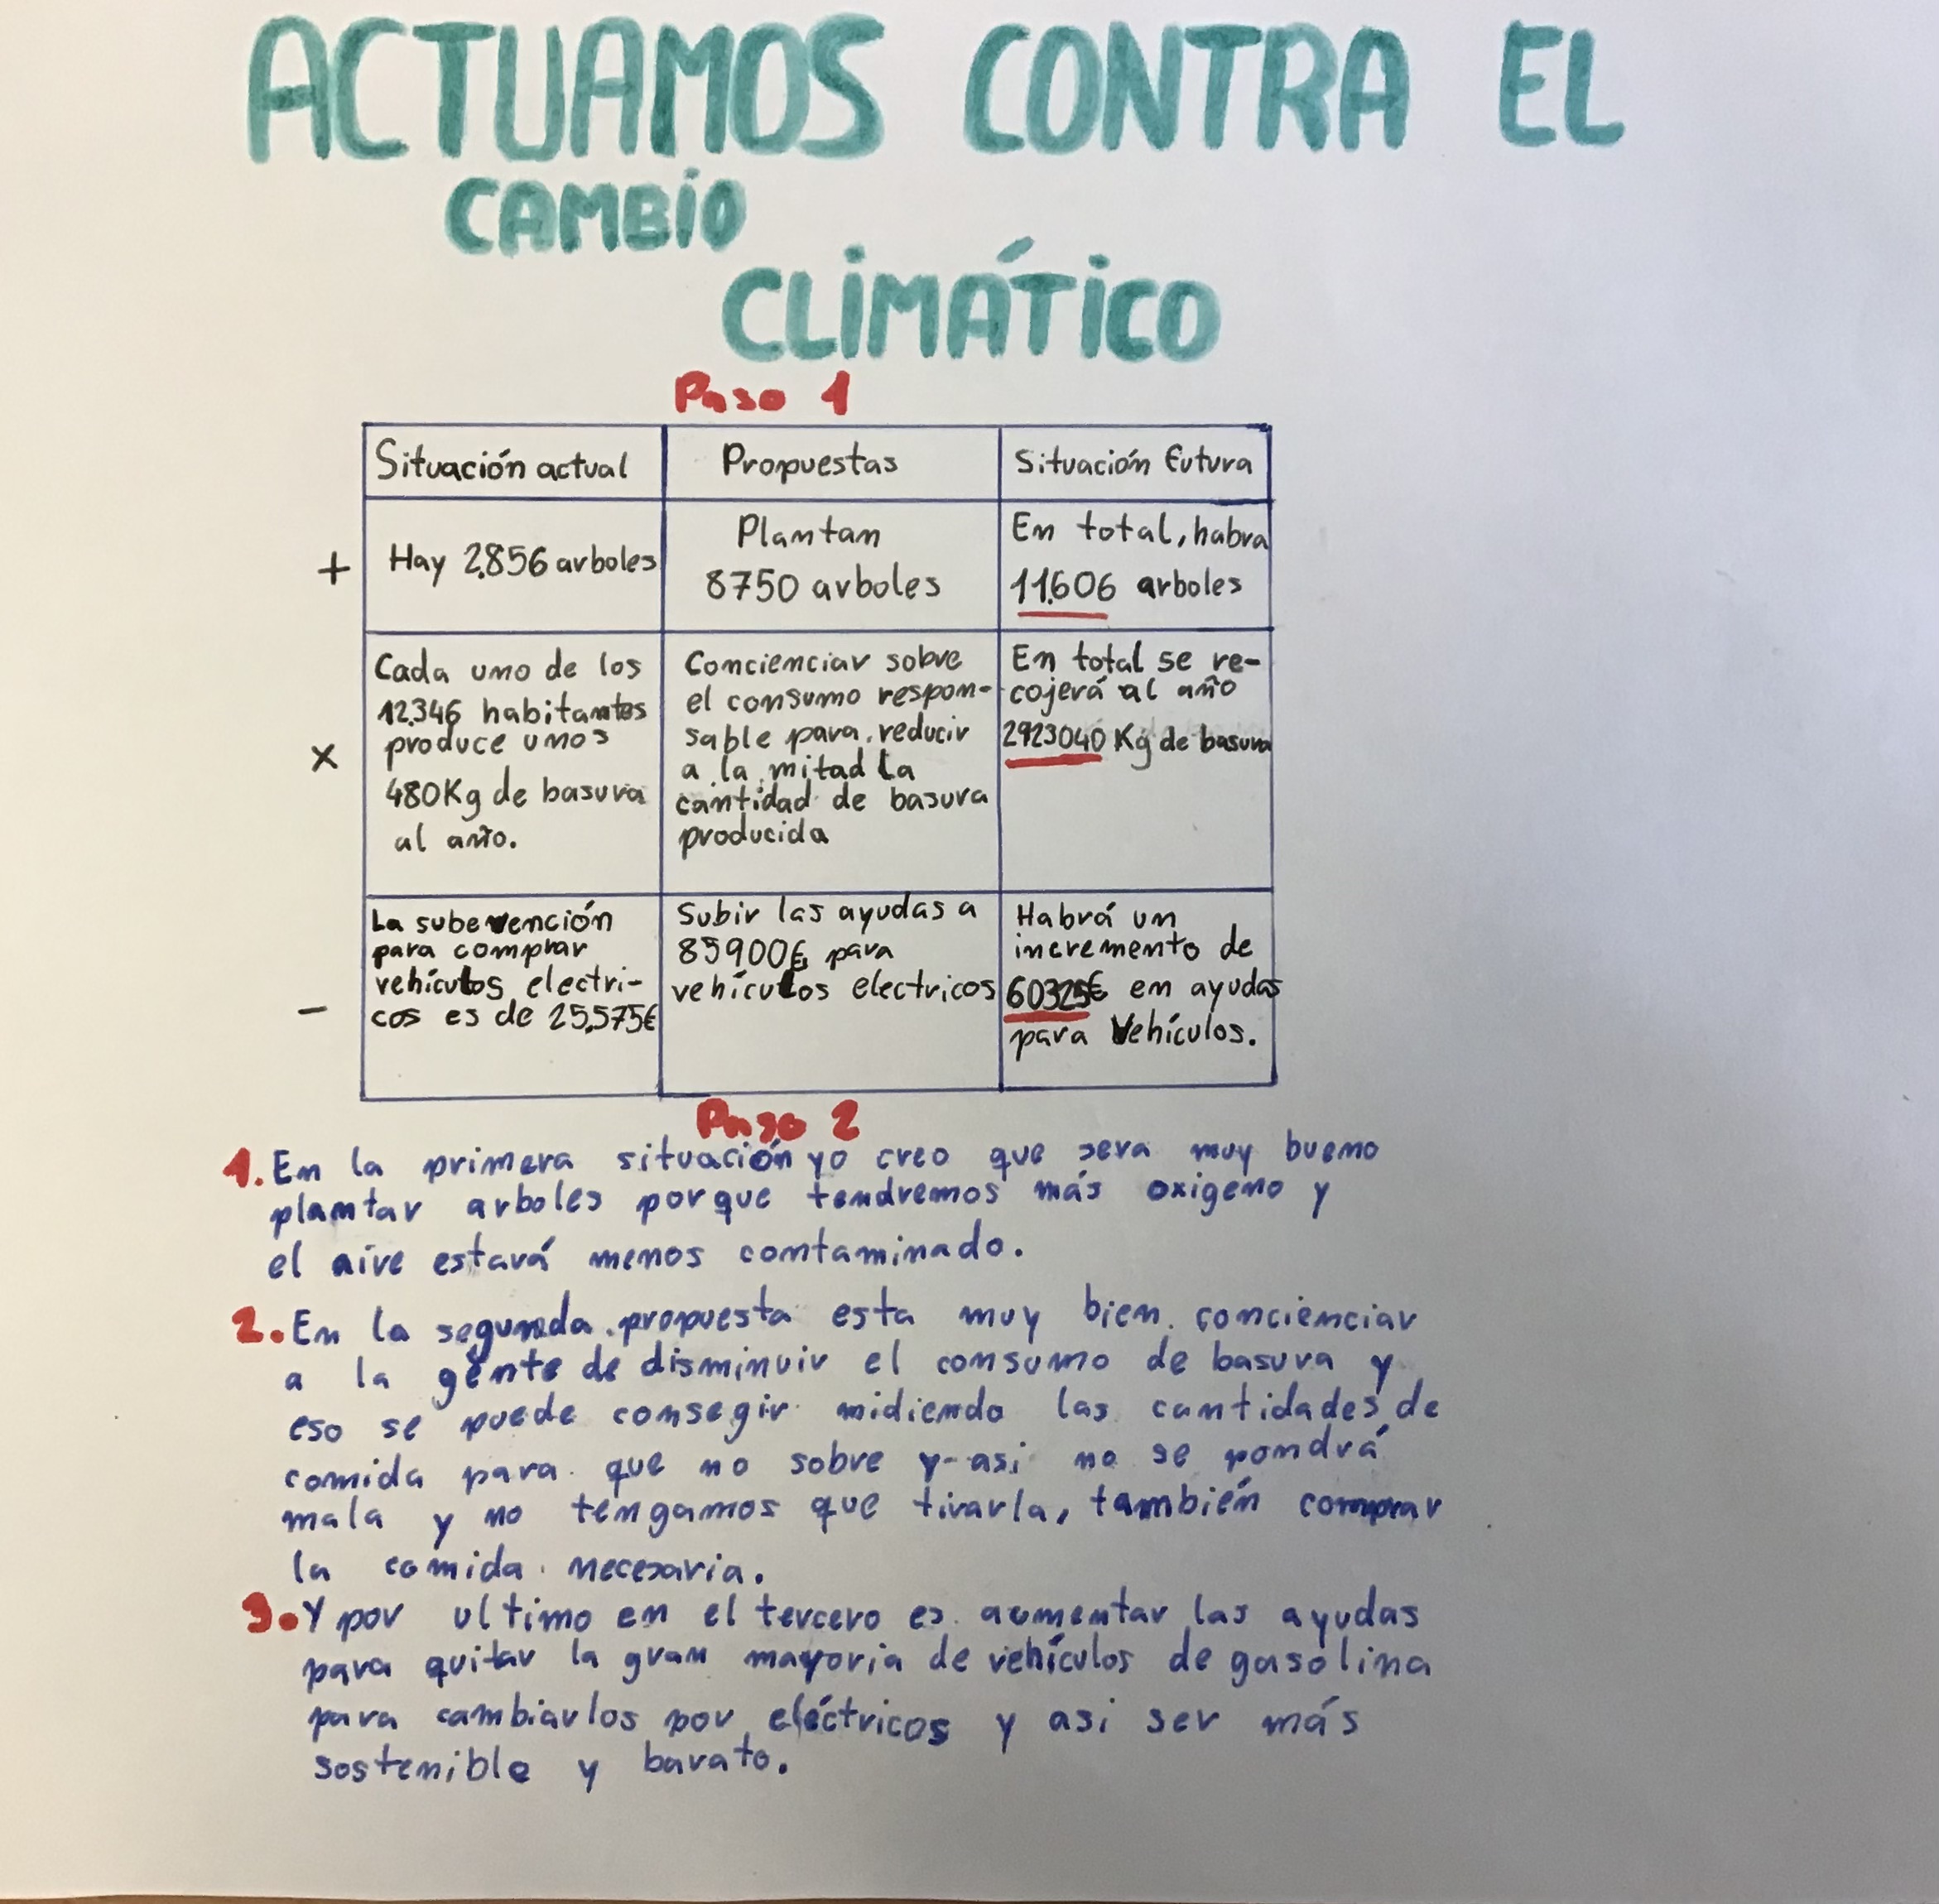 ACTUAMOS CONTRA EL
CAMBIO
CLIMÁTICO
Paso 1
Situación actual
Propuestas
Situación futura
+
Hay 2.856 arboles
Plantan
8750 arboles
En total, habra
11.606 arboles
x
Cada uno de los
12.346 habitantes
produce unos
480Kg de basura
al año.
Concienciar sobre
el consumo respon-
sable para reducir
a la mitad la
cantidad de basura
producida
En total se re-
cojerá al año
2923040 Kg de basura
-
La subevención
para comprar
vehículos electri-
cos es de 25.575€
Subir las ayudas a
85900€ para
vehículos electricos
Habrá un
incremento de
60325€ en ayudas
para Vehículos.
Paso 2
1. En la primera situación yo creo que sera muy bueno
plantar arboles porque tendremos más oxigeno y
el aire estará menos contaminado.
2. En la segunda propuesta esta muy bien concienciar
a la gente de disminuir el consumo de basura y
eso se puede consegir midiendo las cantidades de
comida para que no sobre y asi no se pondrá
mala y no tengamos que tirarla, también comprar
la comida necesaria.
3. Y por ultimo en el tercero es aumentar las ayudas
para quitar la gran mayoria de vehículos de gasolina
para cambiarlos por eléctricos y asi ser más
sostenible y barato.